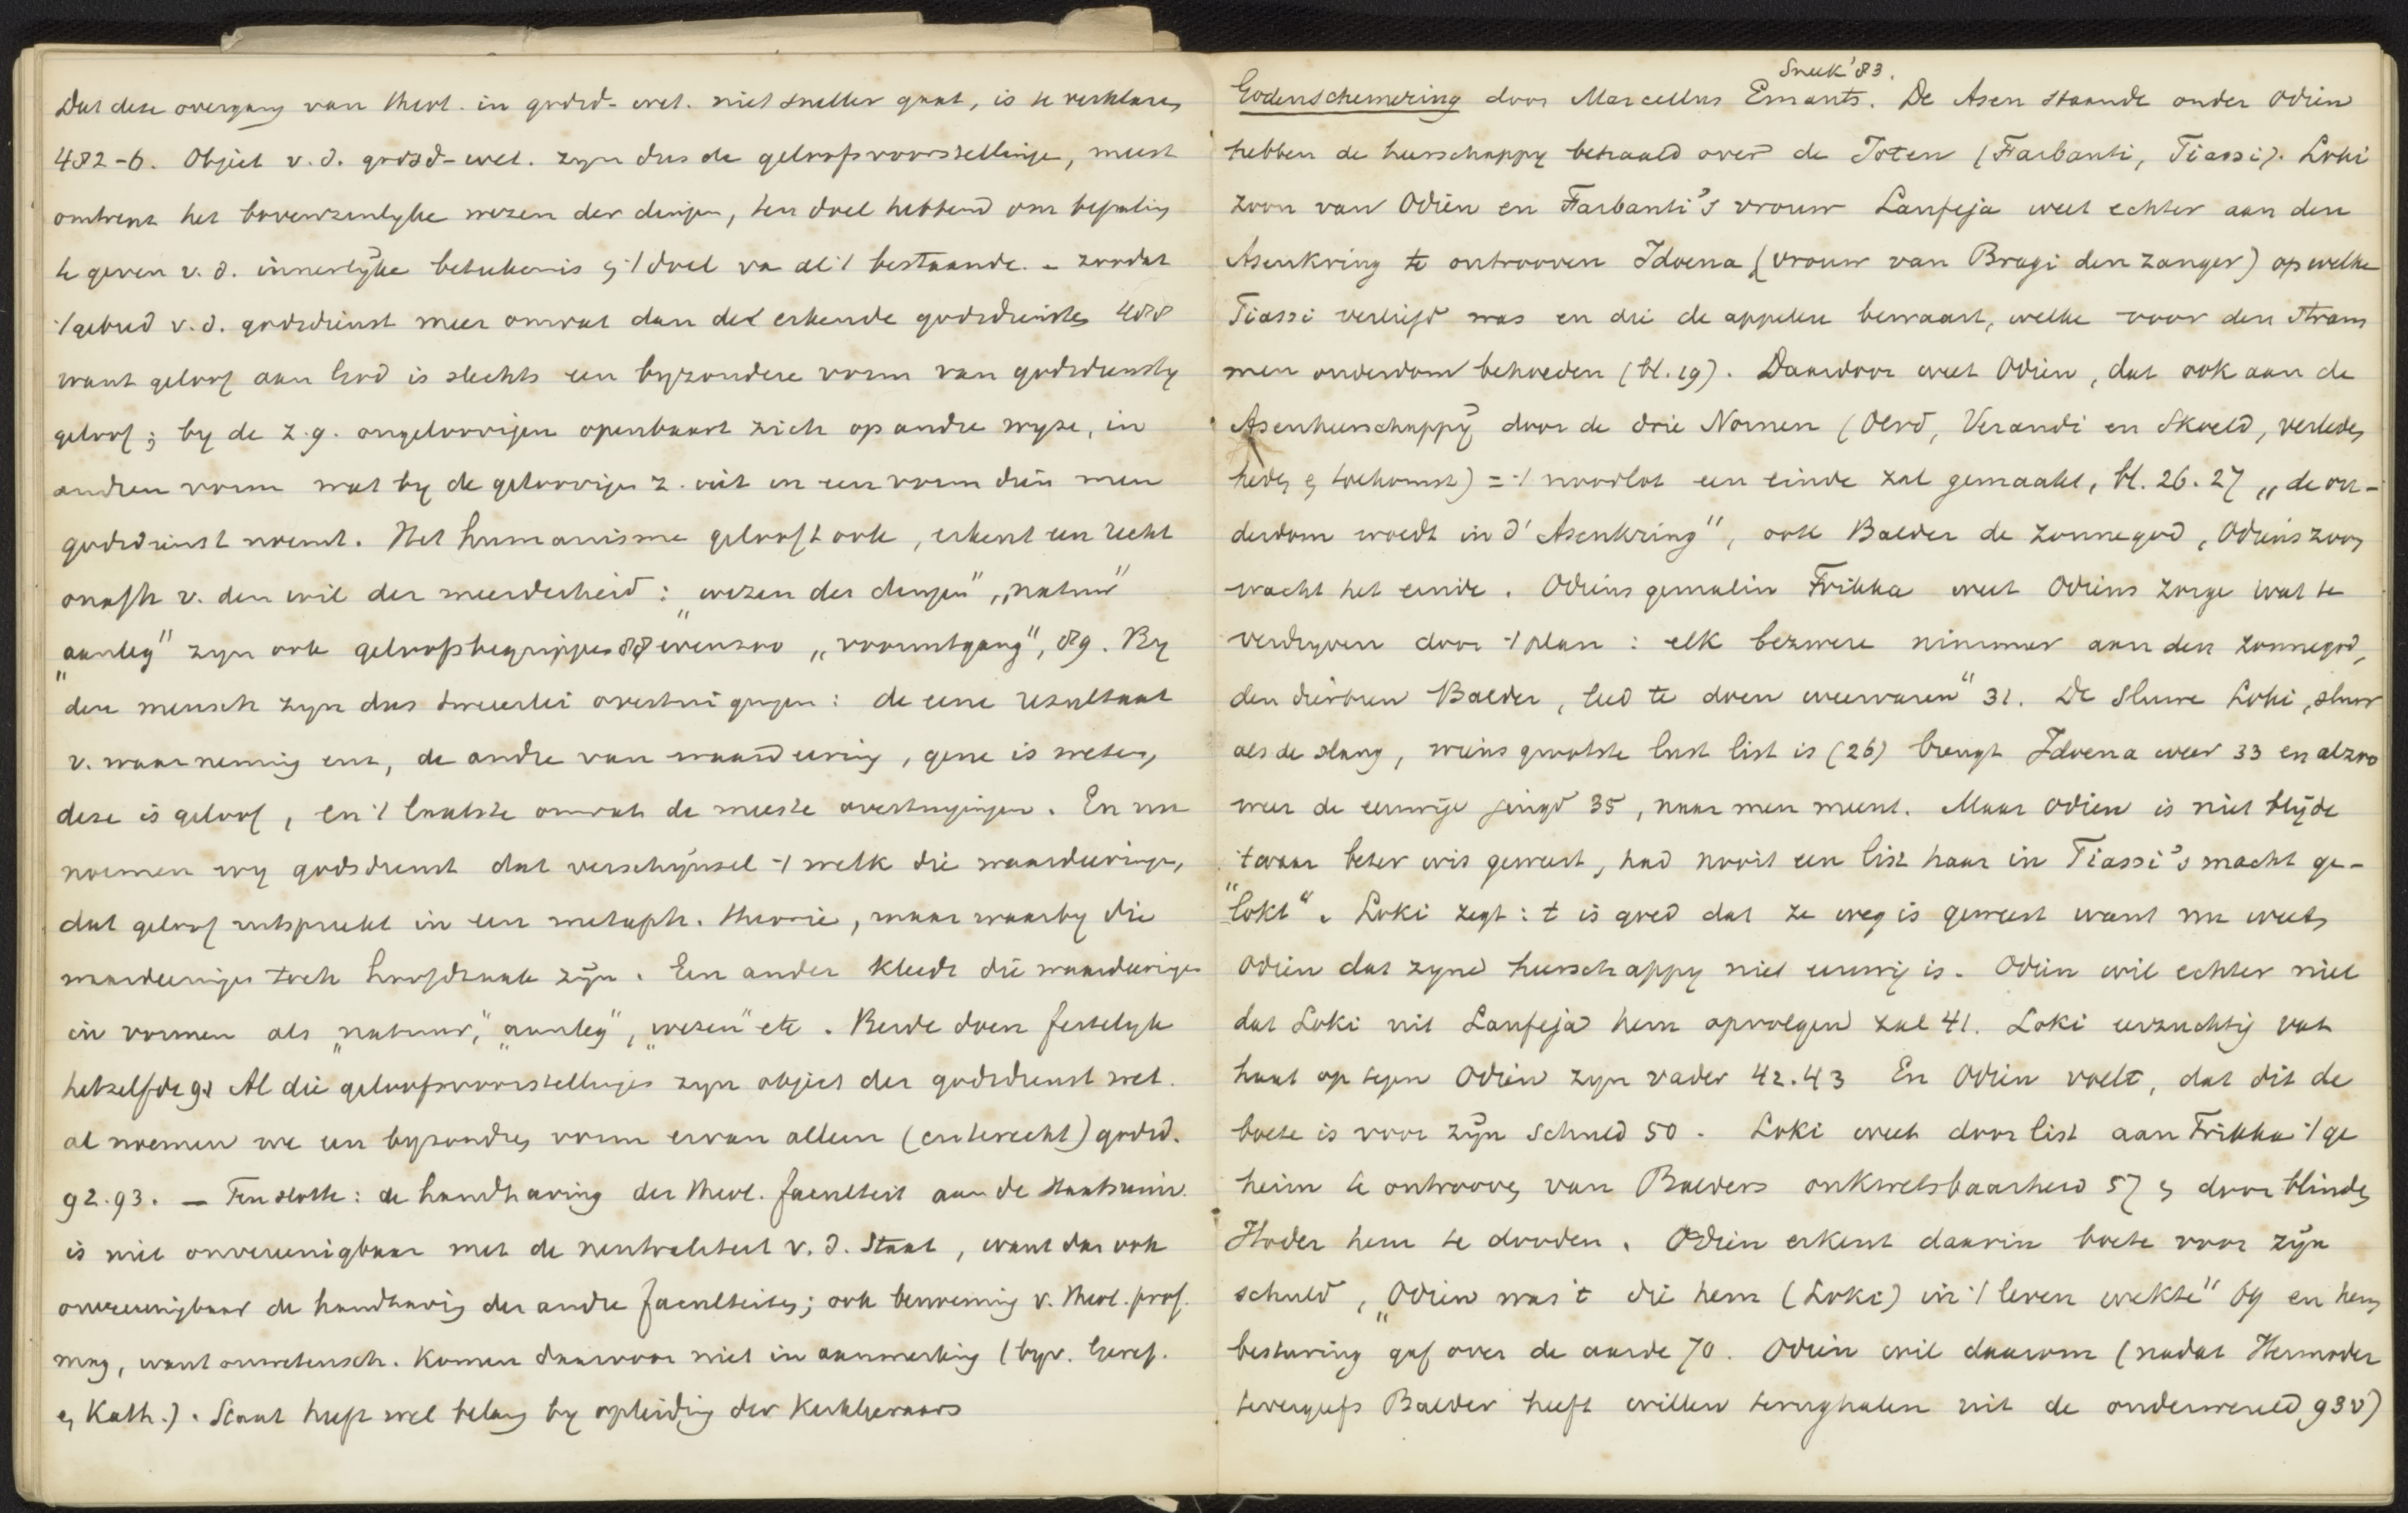 Dat deze overgang van theol. in godsd-wet. niet sneller gaat, is te verklaren
482-6. Object v.d. godsd-wet. zyn dus de geloofsvoorstellingen, meest
omtrent het bovenzinlyke wezen der dingen, ten doel hebbend om bepaling
te geven v.d. innerlyke beteekenis en 't doel van al 't bestaande. – zoodat
't gebied v.d. godsdienst meer omvat dan de erkende godsdiensten 488
want geloof aan God is slechts een byzondere vorm van godsdienstig
geloof; by de z.g. ongeloovigen openbaart zich op andre wyze, in
andren vorm wat by de geloovigen z. uit in een vorm dien men
godsdienst noemt. Het humanisme gelooft ook, erkent een recht
onafh v. den wil der meerderheid: "wezen der dingen", "natuur"
"aanleg" zyn ook geloofsbegrippen 88 evenzoo "vooruitgang", 89. By
den mensch zyn dus tweeerlei overtuigingen: de eene resultaat
v. waarneming enz, de andre van waardeering, gene is weten,
deze is geloof, en 't laatste omvat de meeste overtuigingen. En nu
noemen wy godsdienst dat verschynsel 't welk die waardeeringen,
dat geloof uitspreekt in een metaph. theorie, maar waarby die
waardeeringen toch hoofdzaak zyn. Een ander kleedt die waardeeringen
in vormen als "natuur", "aanleg", "wezen" etc. Beide doen feitelyk
hetzelfde 91 Al die geloofsvoorstellingen zyn object der godsdienst wet.
al noemen we een byzondren vorm ervan alleen (en terecht) godsd.
92.93. – Ten slotte: de handhaving der theol. faculteit aan de staatsuniv.
is niet onvereenigbaar met de neutraliteit v.d. Staat, want dan ook
onvereenigbaar de handhaving der andre faculteiten; ook benoeming v. theol. prof.
mag, want onwetensch. komen daarvoor niet in aanmerking (byv. Geref.
en Kath.). Staat heeft wel belang by opleiding der Kerkleeraars
Sneek '83.
Godenschemering door Marcellus Emants. De Asen staande onder Odien
hebben de heerschappy behaald over de Joten (Farbanti, Tiassi). Loki
zoon van Odien en Farbanti's vrouw Laufeja weet echter aan den
Asenkring te ontrooven Idoena (vrouw van Bragi den zanger) op welke
Tiassi verliefd was en die de appelen bewaart, welke voor den stram
men ouderdom behoeden (bl. 19). Daardoor weet Odien, dat ook aan de
Asenheerschappy door de drie Nornen (Oerd, Verandi en Skoeld, verleden,
heden en toekomst) = 't noodlot een einde zal gemaakt, bl. 26.27 "de ou-
derdom woedt in d' Asenkring", ook Balder de zonnegod, Odiens zoon
wacht het einde. Odiens gemalin Frikka weet Odiens zorgen wat te
verdryven door 't plan: elk bezwere nimmer aan den zonnegod,
den dierbren Balder, leed te doen weervaren" 31. De sluwe Loki, sluw
als de slang, wiens grootste lust list is (26) brengt Idoena weer 33 en alzoo
weer de eeuwige jeugd 35, naar men meent. Maar Odien is niet blyde
't waar beter wis geweest, had nooit een list haar in Tiassi's macht ge-
"lokt". Loki zegt: 't is goed dat ze weg is geweest want nu weet
Odien dat zyne heerschappy niet eeuwig is. Odien wil echter niet
dat Loki uit Laufeja hem opvolgen zal 41. Loki eerzuchtig vat
haat op tegen Odien zyn vader 42.43 En Odien voelt, dat dit de
boete is voor zyn schuld 50. Loki weet door list aan Frikka 't ge
heim te ontrooven van Balders onkwetsbaarheid 57 en door blinden
Hoder hem te dooden. Odien erkent daarin boete voor zyn
schuld, "Odien was 't die hem (Loki) in 't leven wekte" 69 en hem
besturing gaf over de aarde 70. Odien wil daarom (nadat Hermoder
tevergeefs Balder heeft willen terughalen uit de onderwereld 93v)